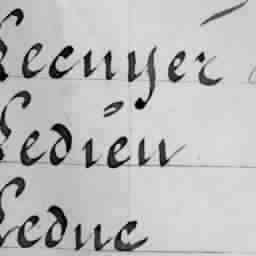 Lecuyer
Ledieu
Leduc